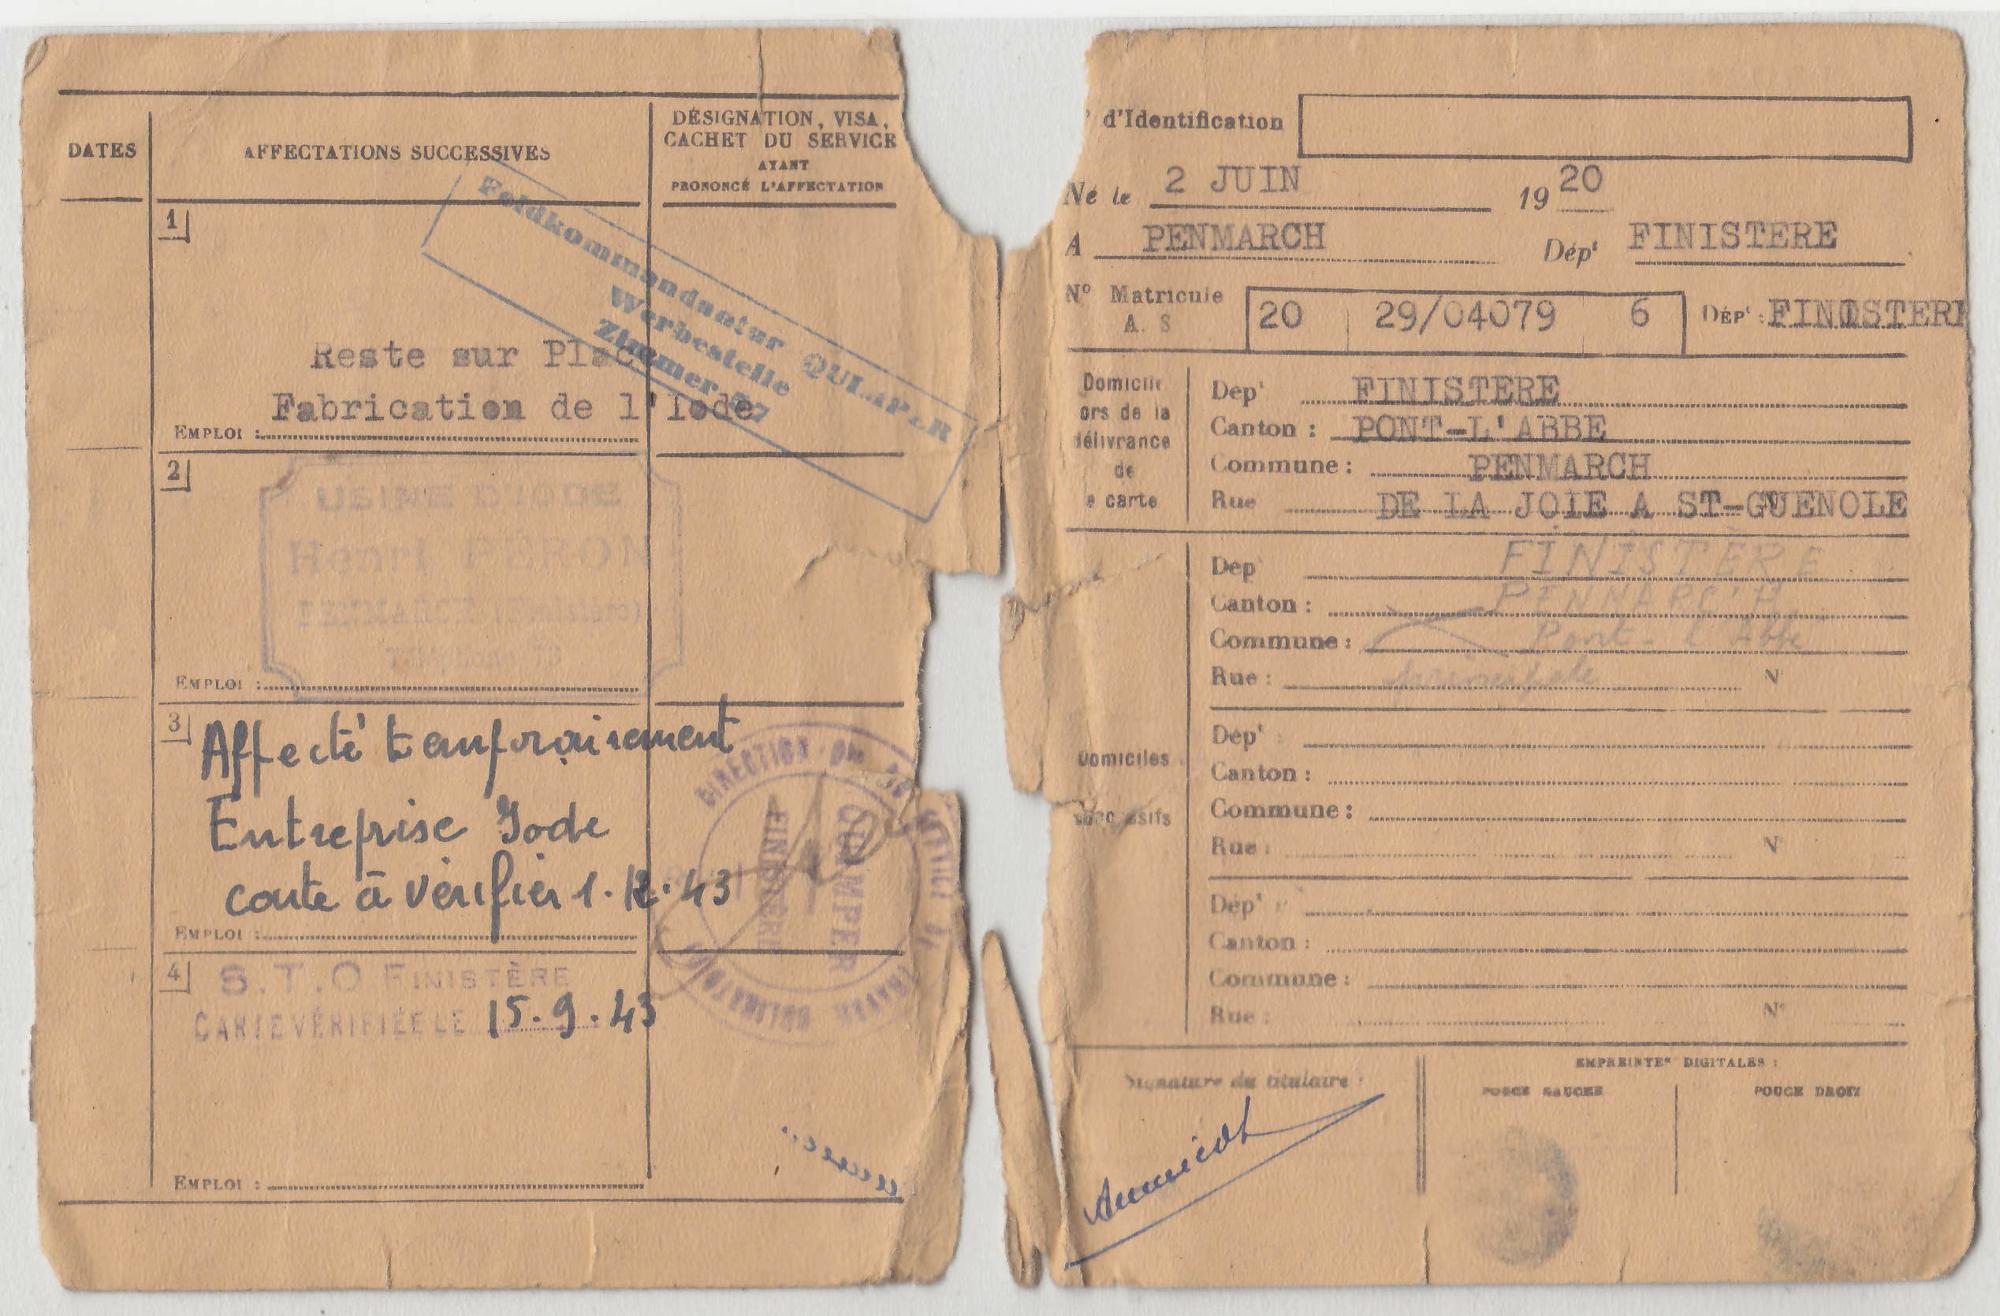 DATES
AFFECTATIONS SUCCESSIVES
DÉSIGNATION, VISA,
CACHET DU SERVICE
AYANT
PRONONCÉ L'AFFECTATION
1
Feldkommandantur QUIMPER
Werbestelle
Zimmer
Reste sur Plac
Fabrication de l'Iode
EMPLOI :
2
USINE D'IODE
Henri PÉRON
PENMARCH (Finistère)
Téléphone
EMPLOI :
3
Affecté temporairement
Entreprise Iode
carte à vérifier 1.12.43
EMPLOI :
DIRECTION DU SERVICE DU TRAVAIL OBLIGATOIRE
QUIMPER
FINISTERE
4
S.T.O FINISTÈRE
CARTE VÉRIFIÉE LE 15.9.43
EMPLOI :
d'Identification
Né le 2 JUIN 1920
A PENMARCH Dépt FINISTERE
N° Matricule
A. S
20 29/04079 6 DÉPt : FINISTERE
Domicile
ors de la
délivrance
de
e carte
Dept FINISTERE
Canton : PONT-L'ABBE
Commune : PENMARCH
Rue DE LA JOIE A ST-GUENOLE
Domiciles
successifs
Dept FINISTÈRE
Canton : PENMARC'H
Commune : Pont-l'Abbé
Rue : N°
Dépt
Canton :
Commune :
Rue : N°
Dépt
Canton :
Commune :
Rue : N°
Signature du titulaire :
EMPREINTES DIGITALES :
POUCE GAUCHE
POUCE DROIT